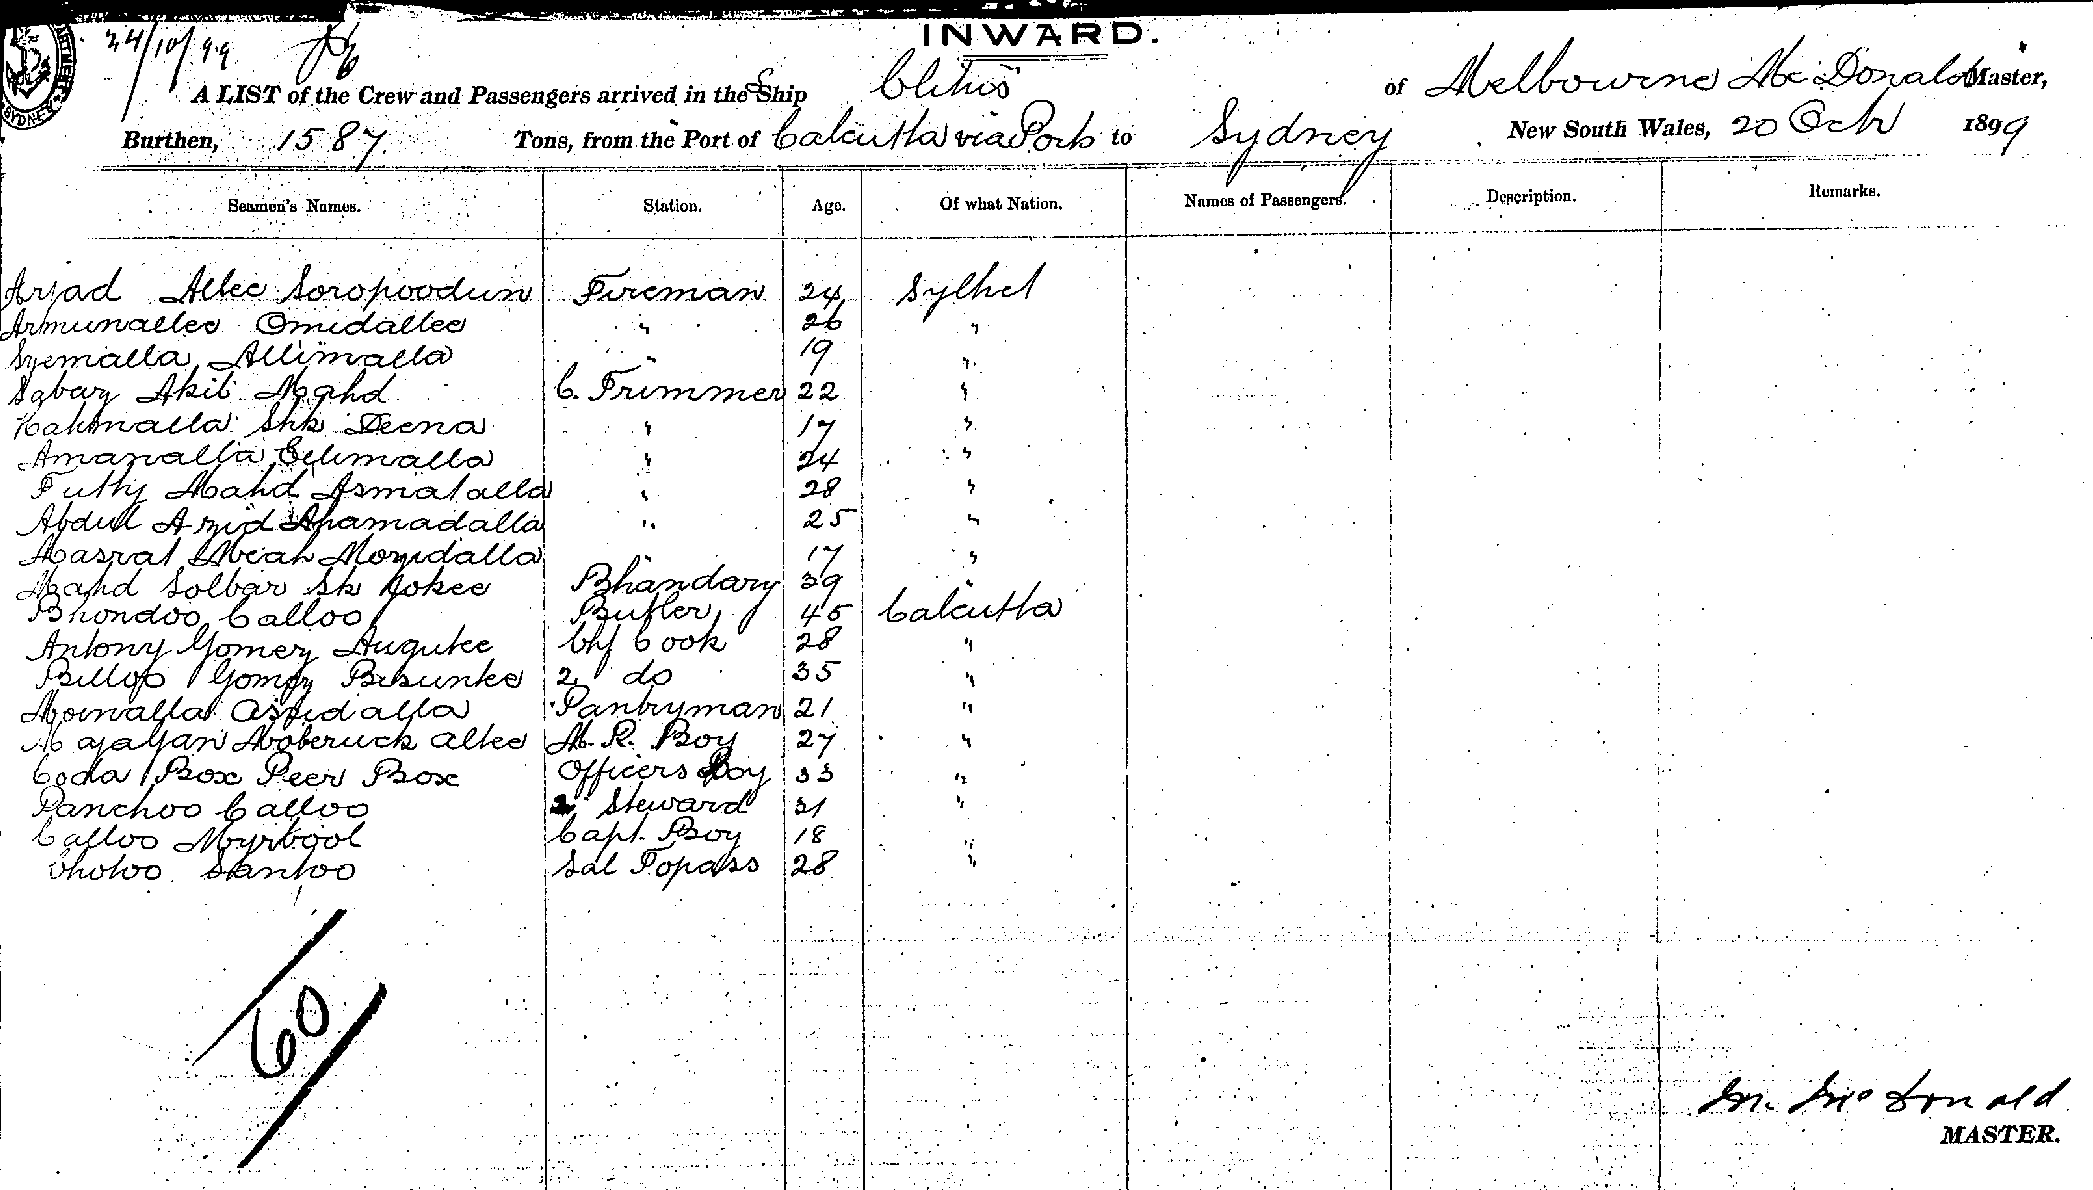 INWARD.
24/10/99
A LIST of the Crew and Passengers arrived in the S Ship Clitus of Melbourne Mc Donald Master,
Burthen, 1587 Tons, from the Port of Calcutta via Ports to Sydney New South Wales, 20 Oct 1899
Seamen's Names. Station. Age. Of what Nation. Names of Passengers. Description. Remarks.
Arjad Allee Soropoodun Fireman 24 Sylhet
Armunallee Omidallee " 26 "
Syemalla Allimalla " 19 "
Sabay Akil Mahd C. Trimmer 22 "
Kahmalla Shk Deena " 17 "
Amanalla Edimalla " 24 "
Futty Mahd Asmatalla " 28 "
Abdul Azid Ahamadalla " 25 "
Masrat Meah Mozidalla " 17 "
Mahd Solbar Sk Jokee Bhandary 39 "
Bhondoo Calloo Butler 45 Calcutta
Antony Gomez Augutee Chf Cook 28 "
Billop Gomez Brisunkee 2 do 35 "
Moinalla Asfidalla Pantryman 21 "
Majalyan Moberuck Allee M. R. Boy 27 "
Coda Box Peer Box Officers Boy 33 "
Panchoo Calloo 2 Steward 31 "
Calloo Myrbool Capt. Boy 18 "
Chotoo Santoo Sal Topass 28 "
60
M. McDonald
MASTER.